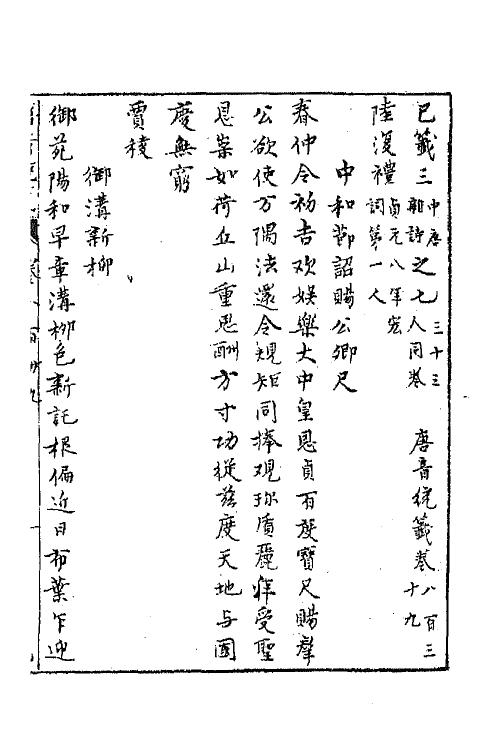 已籤三中唐雜詩之七三十三人同卷　唐音統籤卷八百三十九
陸復禮貞元八年宏詞第一人
中和節詔賜公卿尺
春仲令初吉欢娛樂大中皇恩貞百度寶尺賜羣
公欲使方隅法還令規矩同捧观珎質麗拜受聖
恩崇如荷丘山重思酬方寸功從兹度天地与國
慶無窮
賈稜
御溝新柳
御苑陽和早章溝柳色新託根偏近日布葉乍迎